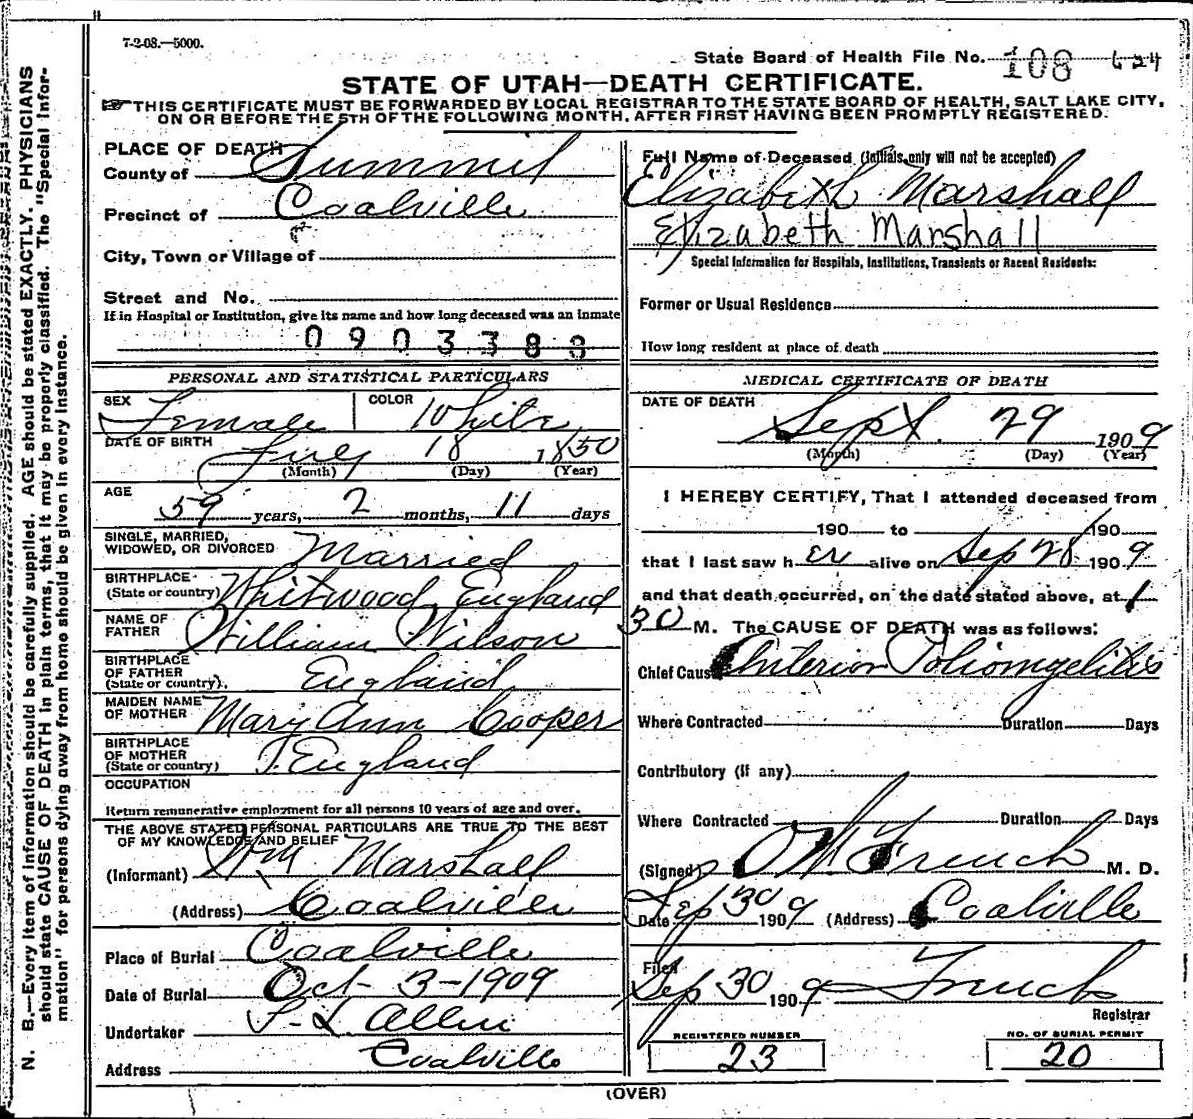 7-2-08.—5000.
State Board of Health File No. 108 624
STATE OF UTAH—DEATH CERTIFICATE.
THIS CERTIFICATE MUST BE FORWARDED BY LOCAL REGISTRAR TO THE STATE BOARD OF HEALTH, SALT LAKE CITY,
ON OR BEFORE THE 5TH OF THE FOLLOWING MONTH, AFTER FIRST HAVING BEEN PROMPTLY REGISTERED.
N. B.—Every item of information should be carefully supplied. AGE should be stated EXACTLY. PHYSICIANS
should state CAUSE OF DEATH in plain terms, that it may be properly classified. The "Special Infor-
mation" for persons dying away from home should be given in every instance.
PLACE OF DEATH
County of Summit
Precinct of Coalville
City, Town or Village of
Street and No.
If in Hospital or Institution, give its name and how long deceased was an inmate
0903388
PERSONAL AND STATISTICAL PARTICULARS
SEX Female COLOR White
DATE OF BIRTH July 18 1850
(Month) (Day) (Year)
AGE
59 years, 2 months, 11 days
SINGLE, MARRIED,
WIDOWED, OR DIVORCED Married
BIRTHPLACE
(State or country) Whitwood England
NAME OF
FATHER William Wilson
BIRTHPLACE
OF FATHER
(State or country) England
MAIDEN NAME
OF MOTHER Mary Ann Cooper
BIRTHPLACE
OF MOTHER
(State or country) England
OCCUPATION
Return remunerative employment for all persons 10 years of age and over.
THE ABOVE STATED PERSONAL PARTICULARS ARE TRUE TO THE BEST
OF MY KNOWLEDGE AND BELIEF
(Informant) Wm Marshall
(Address) Coalville
Place of Burial Coalville
Date of Burial Oct 3-1909
Undertaker Allen
Address Coalville
Full Name of Deceased (Initials only will not be accepted)
Elizabeth Marshall
Elizabeth Marshall
Special Information for Hospitals, Institutions, Transients or Recent Residents:
Former or Usual Residence
How long resident at place of death
MEDICAL CERTIFICATE OF DEATH
DATE OF DEATH
Sept. 29 1909
(Month) (Day) (Year)
I HEREBY CERTIFY, That I attended deceased from
190 to 190
that I last saw h er alive on Sep 28 1909
and that death occurred, on the date stated above, at 1
30 M. The CAUSE OF DEATH was as follows:
Chief Cause Anterior Poliomyelitis
Where Contracted Duration Days
Contributory (if any)
Where Contracted Duration Days
(Signed) French M. D.
Date Sep 30 1909 (Address) Coalville
Filed
Sep 30 1909 French
Registrar
REGISTERED NUMBER
23
NO. OF BURIAL PERMIT
20
(OVER)